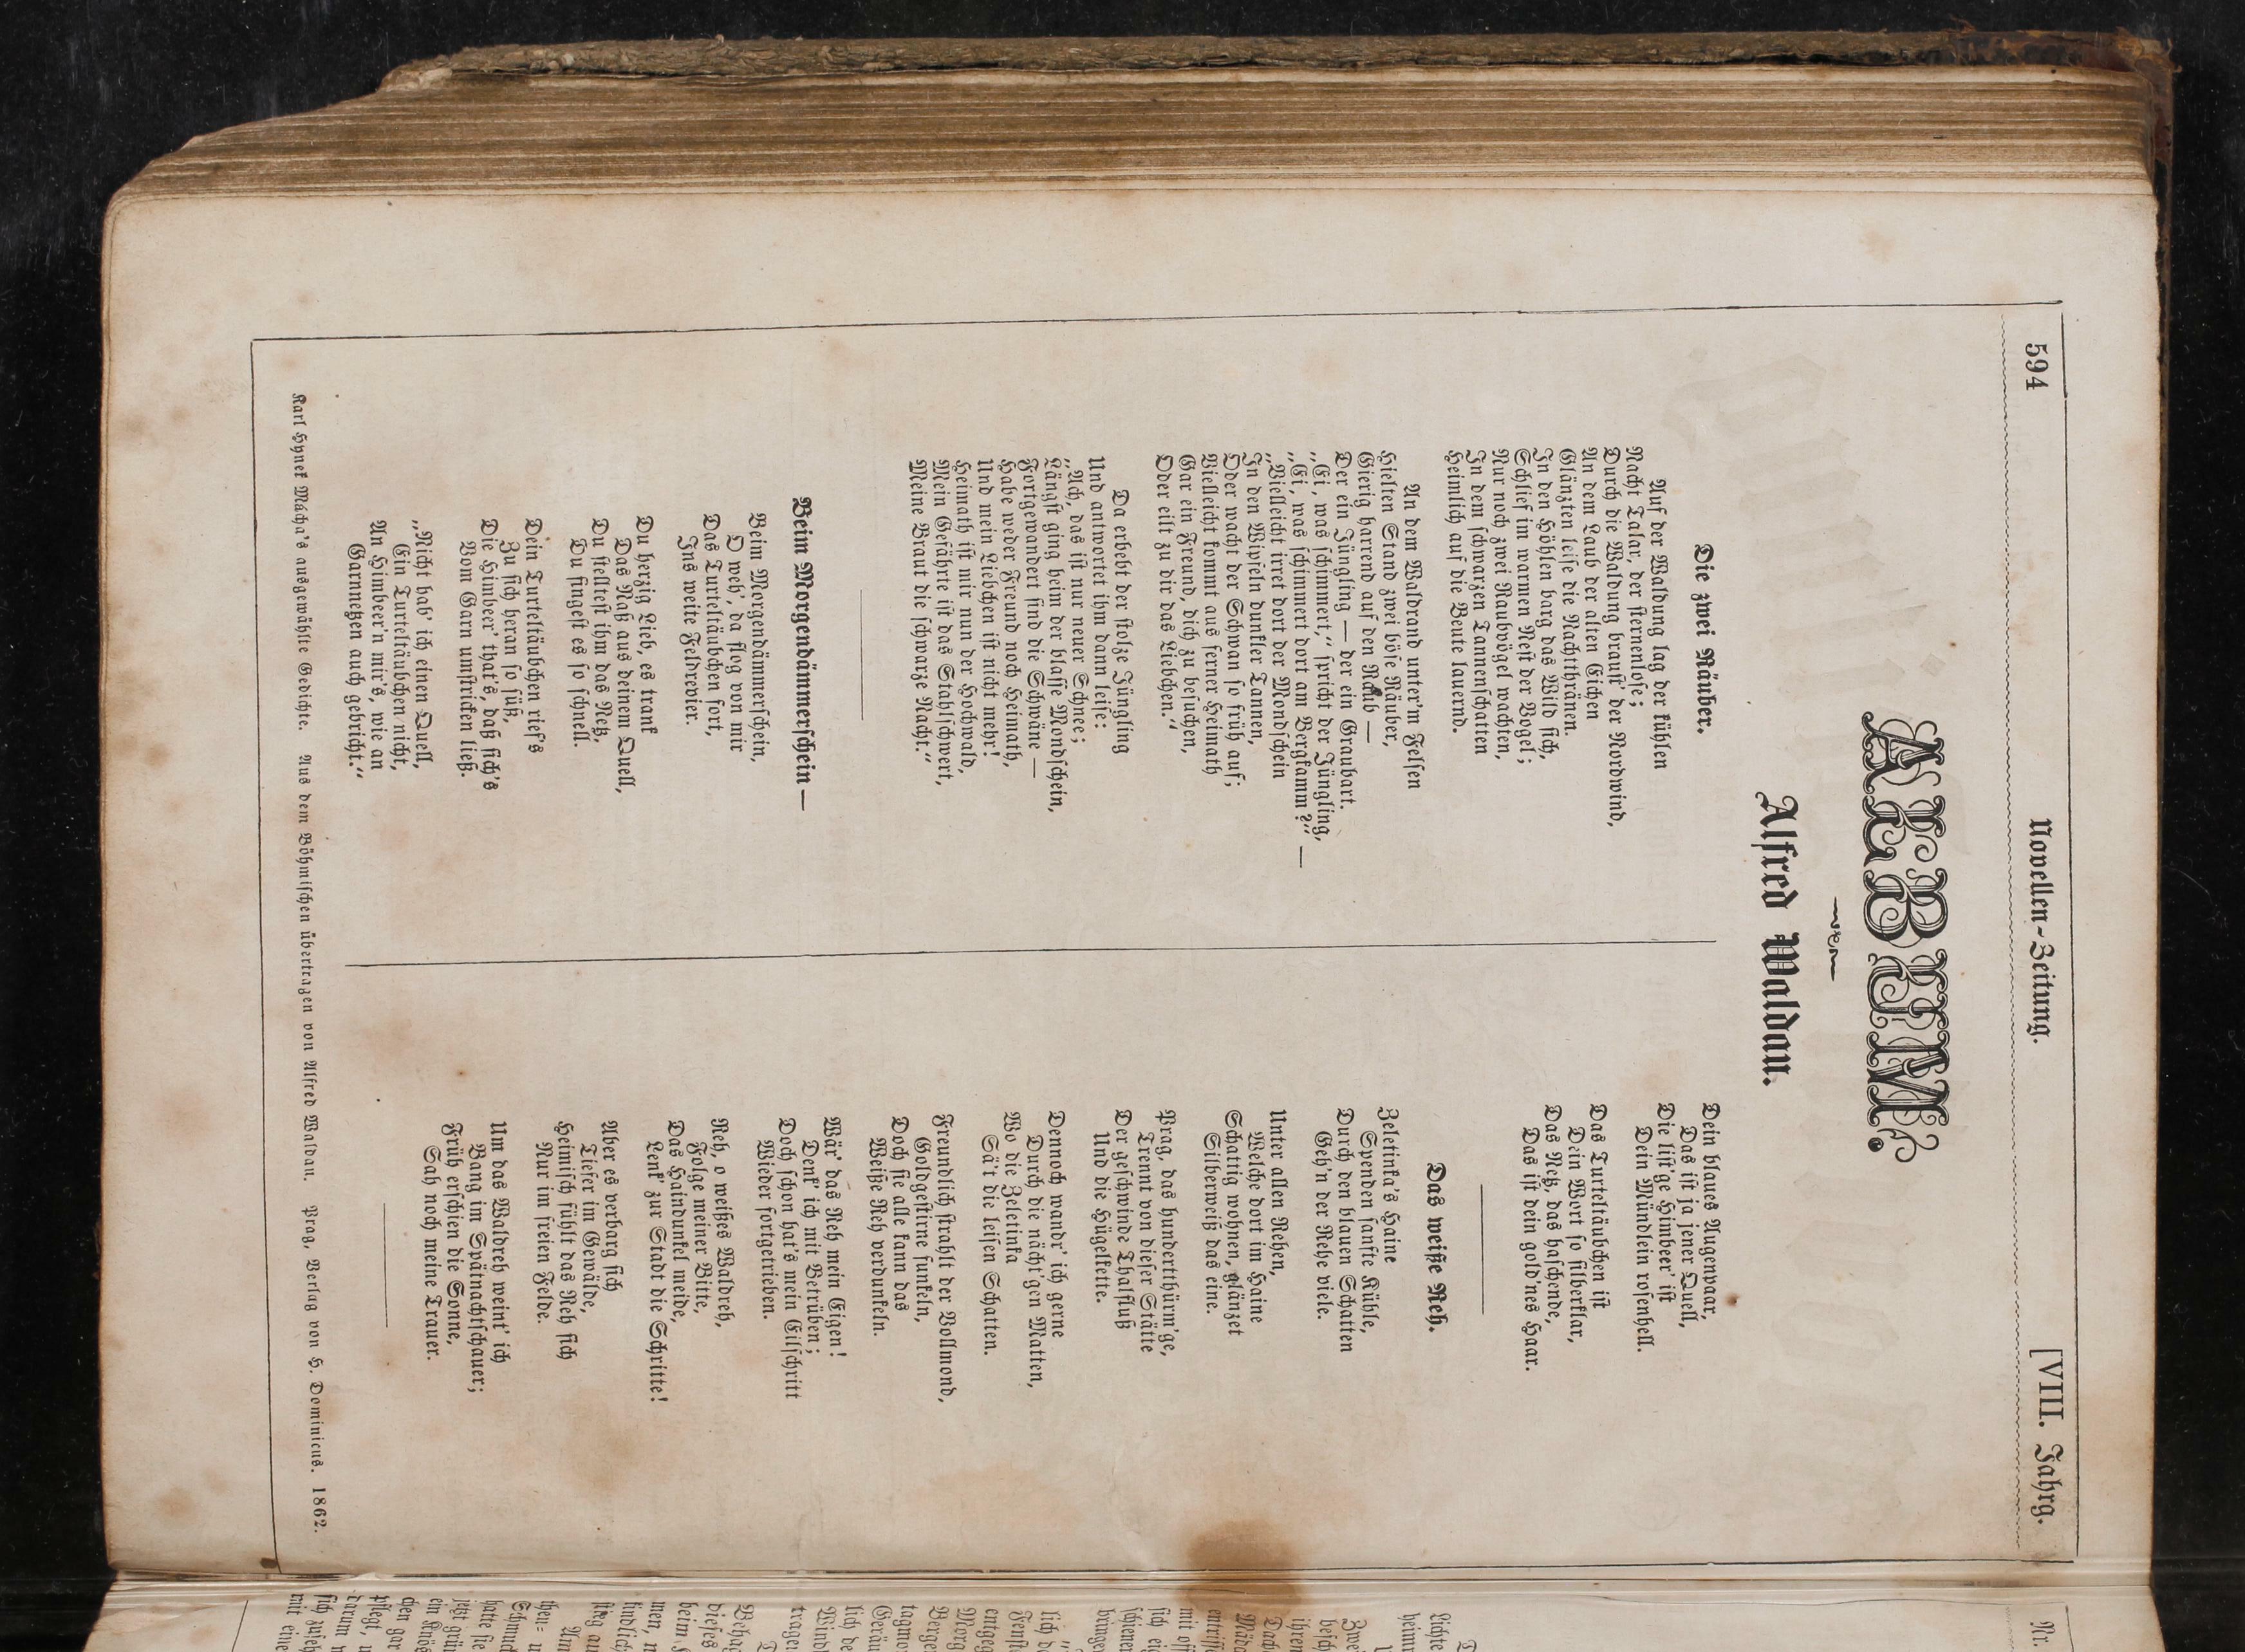 594
Novellen-Zeitung.
[VIII. Jahrg.
ALBUM.
Alfred Waldau.
Die zwei Räuber.
Auf der Waldung lag der kühlen
Nacht Talar, der sternenlose;
Durch die Waldung braust' der Nordwind,
An dem Laub der alten Eichen
Glänzten leise die Nachtthränen.
In den Höhlen barg das Wild sich,
Schlief im warmen Nest der Vogel;
Nur noch zwei Raubvögel wachten,
In dem schwarzen Tannenschatten
Heimlich auf die Beute lauernd.
An dem Waldrand unter'm Felsen
Hielten Stand zwei böse Räuber,
Gierig harrend auf den Raub —
Der ein Jüngling — der ein Graubart.
„Ei, was schimmert,“ spricht der Jüngling,
„Ei, was schimmert dort am Bergkamm?“ —
„Vielleicht irret dort der Mondschein
In den Wipfeln dunkler Tannen,
Oder wacht der Schwan so früh auf;
Vielleicht kommt aus ferner Heimath
Gar ein Freund, dich zu besuchen,
Oder eilt zu dir das Liebchen.“
Da erbebt der stolze Jüngling
Und antwortet ihm dann leise:
„Ach, das ist nur neuer Schnee;
Längst ging heim der blasse Mondschein,
Fortgewandert sind die Schwäne —
Habe weder Freund noch Heimath,
Und mein Liebchen ist nicht mehr!
Heimath ist mir nun der Hochwald,
Mein Gefährte ist das Stahlschwert,
Meine Braut die schwarze Nacht.“
Beim Morgendämmerschein —
Beim Morgendämmerschein,
O weh', da flog von mir
Das Turteltäubchen fort,
Ins weite Feldrevier.
Du herzig Lieb, es trank
Das Naß aus deinem Quell,
Du stelltest ihm das Netz,
Du fingest es so schnell.
Dein Turteltäubchen rief's
Zu sich heran so süß,
Die Himbeer' that's, daß sich's
Vom Garn umstricken ließ.
„Nicht hab' ich einen Quell,
Ein Turteltäubchen nicht,
An Himbeer'n mir's, wie an
Garnnetzen auch gebricht.“
Dein blaues Augenpaar,
Das ist ja jener Quell,
Die list'ge Himbeer' ist
Dein Mündlein rosenhell.
Das Turteltäubchen ist
Dein Wort so silberklar,
Das Netz, das haschende,
Das ist dein gold'nes Haar.
Das weiße Reh.
Zeletinka's Haine
Spenden sanfte Kühle,
Durch den blauen Schatten
Geh'n der Rehe viele.
Unter allen Rehen,
Welche dort im Haine
Schattig wohnen, glänzet
Silberweiß das eine.
Prag, das hundertthürm'ge,
Trennt von dieser Stätte
Der geschwinde Thalfluß
Und die Hügelkette.
Dennoch wandr' ich gerne
Durch die nächt'gen Matten,
Wo die Zeletinka
Sä't die leisen Schatten.
Freundlich strahlt der Vollmond,
Goldgestirne funkeln,
Doch sie alle kann das
Weiße Reh verdunkeln.
Wär' das Reh mein Eigen!
Denk' ich mit Betrüben;
Doch schon hat's mein Eilschritt
Wieder fortgetrieben.
Reh, o weißes Waldreh,
Folge meiner Bitte,
Das Haindunkel meide,
Lenk' zur Stadt die Schritte!
Aber es verbarg sich
Tiefer im Gewälde,
Heimisch fühlt das Reh sich
Nur im freien Felde.
Um das Waldreh weint' ich
Bang im Spätnachtschauer;
Früh erschien die Sonne,
Sah noch meine Trauer.
Karl Hynek Mácha's ausgewählte Gedichte. Aus dem Böhmischen übertragen von Alfred Waldau. Prag, Verlag von H. Dominicus. 1862.
Nr.